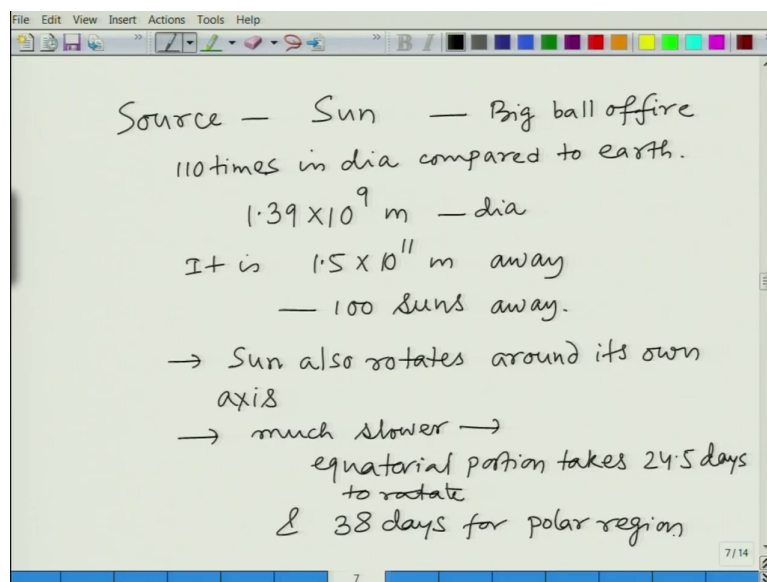 File Edit View Insert Actions Tools Help
Source — Sun — Big ball of fire
110 times in dia compared to earth.
1.39 × 10⁹ m — dia
It is 1.5 × 10¹¹ m away
— 100 suns away.
→ Sun also rotates around its own
axis
→ much slower →
equatorial portion takes 24.5 days
to rotate
& 38 days for polar region
7/14
7